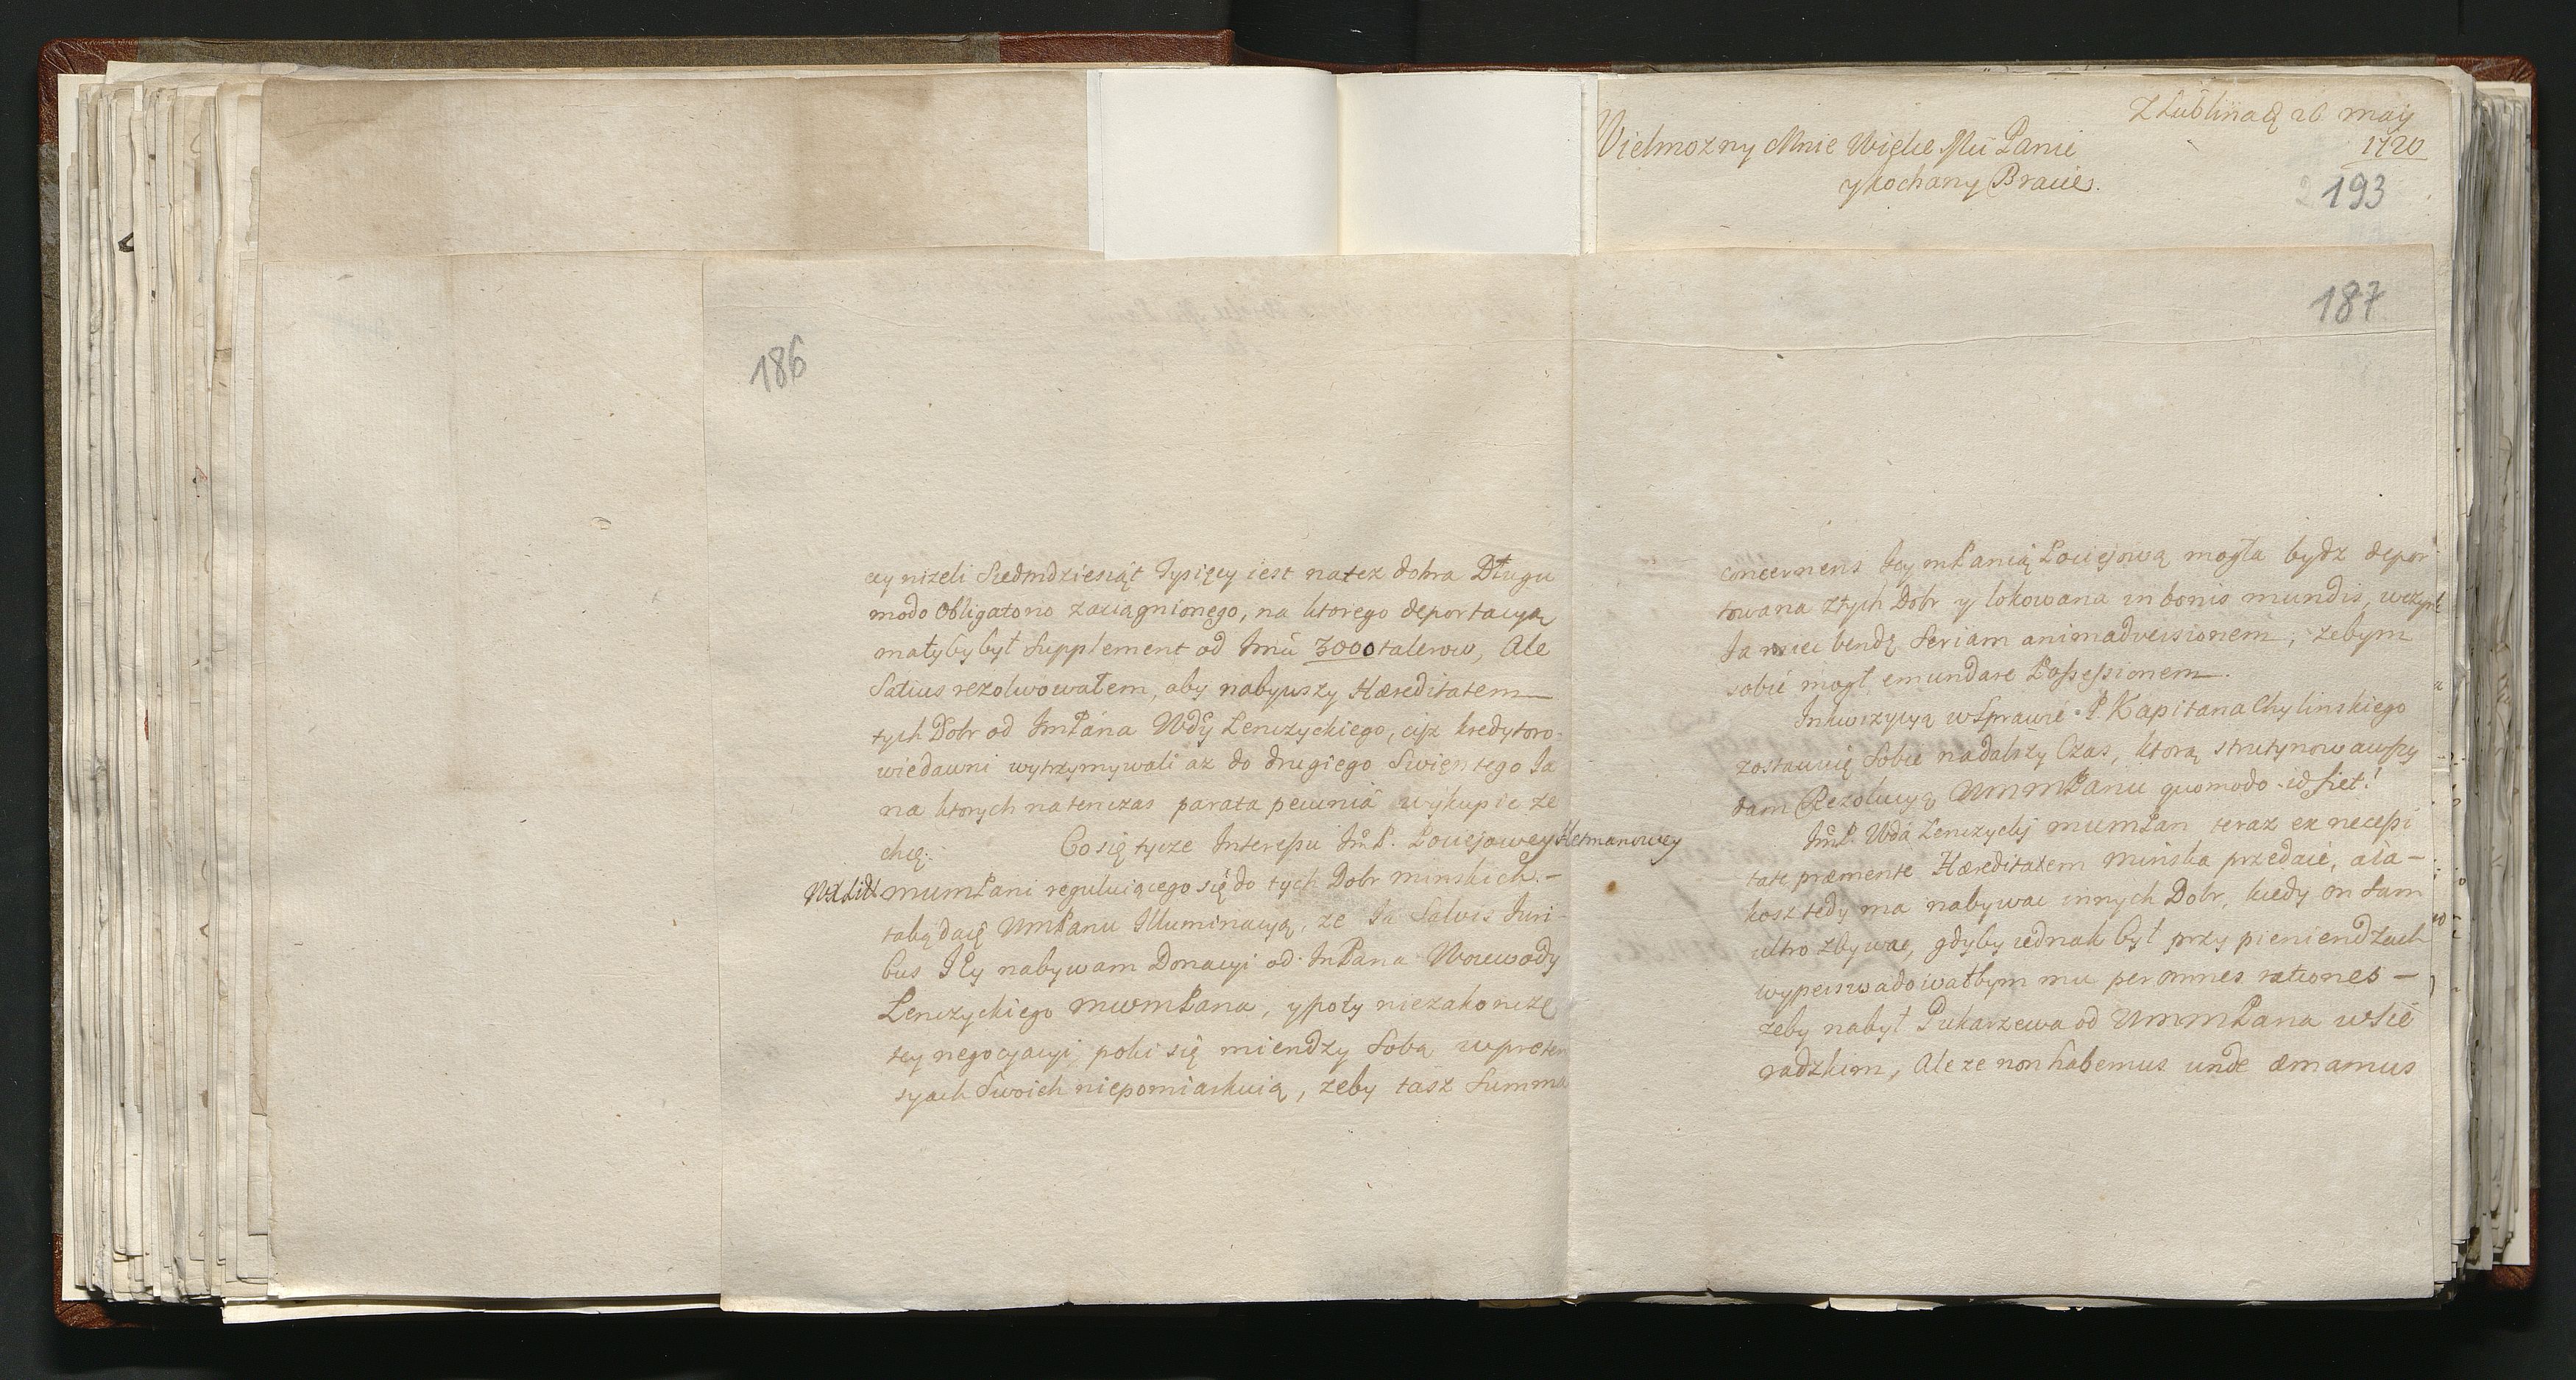 Z Lublina d 26 maij
1720
Wielmozny Mnie Wielce Mći Panie
y kochany Bracie.
193
187
186
cey nizeli Siedmdziesiąt Tysięcy iest na tez dobra Długu
modo obligatorio zaciągnionego, na ktorego deportacyą
małyby był Supplement od Imći 3000 talerow, Ale
Satius rezolwowałem, aby nabywszy Hæreditatem
tych Dobr od ImPana Wdy Lenczyckiego, cijz kredytoro-
wie dawni wytrzymywali az do drugiego Swiętego Ja
na ktorych na tenczas parata pecunia wykupic ze
chcę.
Co się tycze Interessu Im P. Pociejowey Hetmanowey
WXLitt mumPani reguluiącego się do tych Dobr minskich.-
taką daię UmPanu Illuminacyą, ze Ja Salvis Juri-
bus Jey nabywam Donacyi od ImPana Woiewody
Lenczyckiego mwmPana, y poty niezakonczę
tey negocyacyi, poki się miendzy Sobą w preten
syach Swoich niepomiarkuią, zeby tasz Summa
concernens Jey mPanią Pociejową mogła bydz depor
towana z tych Dobr y lokowana in bonis mundis, w czym
Ja miec bendę Seriam animadversionem, zebym
sobie mogł emundare Possessionem.
Inkwizycyą w Sprawie P. Kapitana Chylinskiego
zostawuię Sobie na dalszy Czas, ktorą strutynowawszy
dam Rezolucyą UmmPanu quomodo id fiet!
ImP. Wda Lenczycky mumPan teraz ex necessi
tate præmente Hæreditatem Minska przedaie, a ia-
kosz tedy ma nabywac innych Dobr, kiedy on sam
ultro zbywa, gdyby iednak był przy pieniendzach
wyperswadowałbym mu per omnes rationes -
zeby nabył Pukarzewa od UmmPana w Sie
radzkim, Ale ze non habemus unde emamus